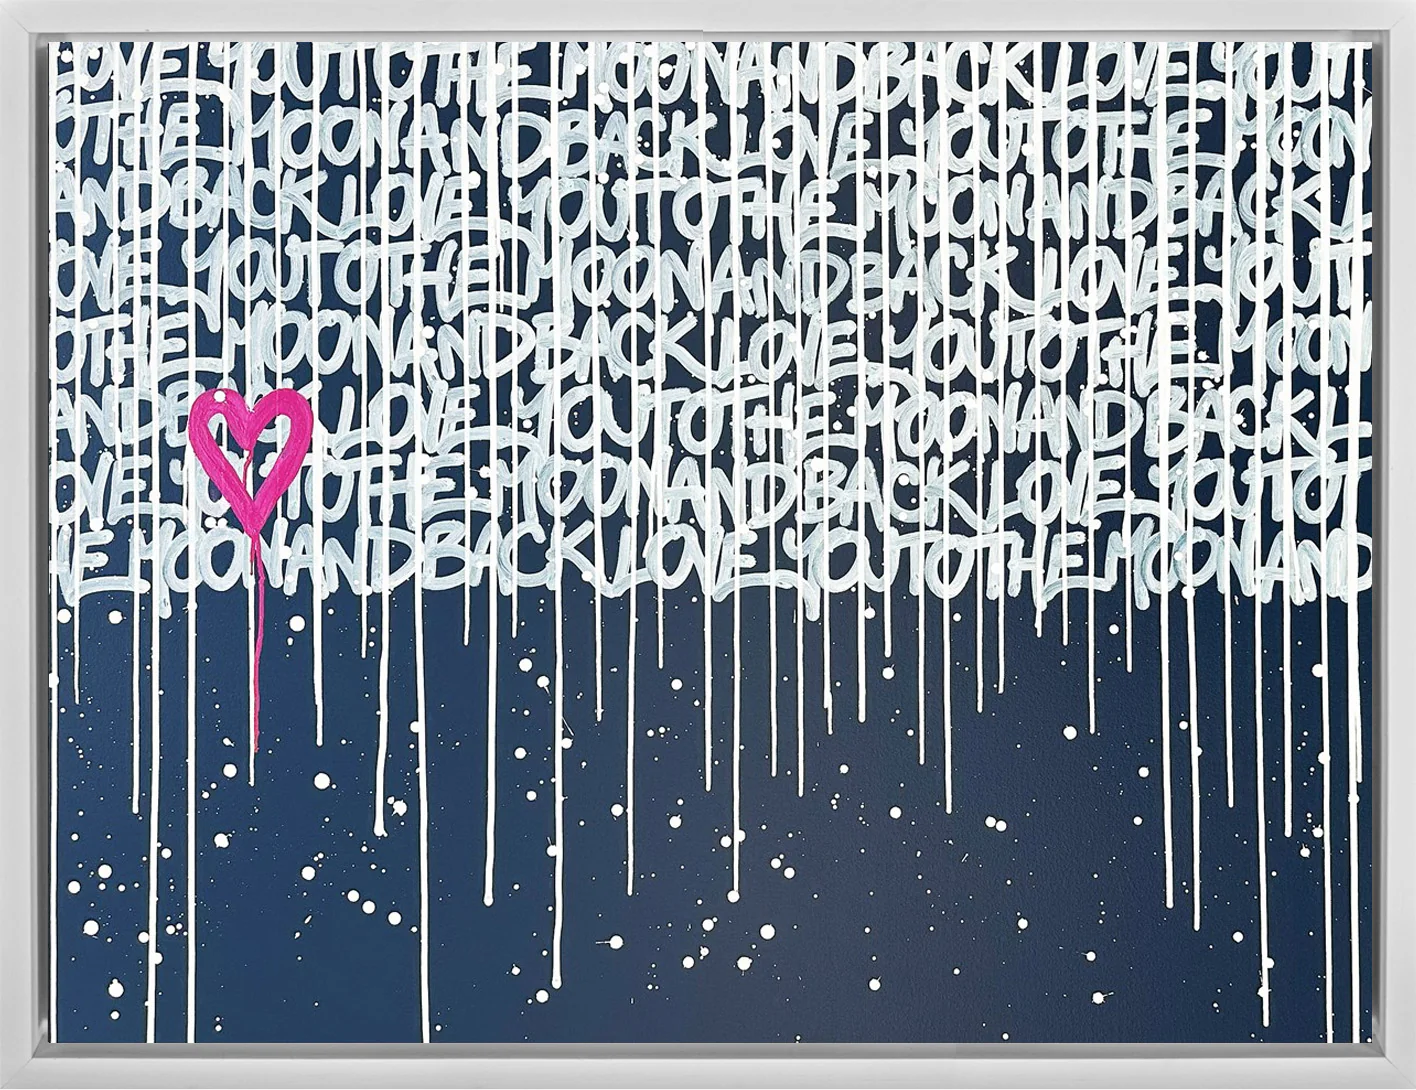 LOVE YOUTOTHE MOONANDBACK LOVE YOUT
OTHE MOONANDBACK LOVE YOUTOTHE MOON
ANDBACK LOVE YOUTOTHE MOONANDBACK L
OVE YOUTOTHE MOONANDBACK LOVE YOUT
OTHE MOONANDBACK LOVE YOUTOTHE MOON
ANDBACK LOVE YOUTOTHE MOONANDBACK L
OVE YOUTOTHE MOONANDBACK LOVE YOUTOT
HE MOONANDBACK LOVE YOUTOTHE MOONAND